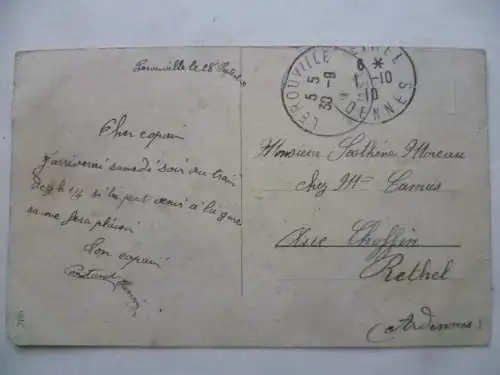 Lerouville le 28 Septembre
Cher copain
j'arriverai samedi soir au train
de 9 h 1/4 si tu peut venir à la gare
sa me fera plaisir
Ton copain
Constant
LEROUVILLE
5 5
30 -9
RETHEL
6 *
1 -10
10
ARDENNES
Monsieur Moreau
chez Mr Camus
Rue Chyffin
Rethel
(Ardennes)